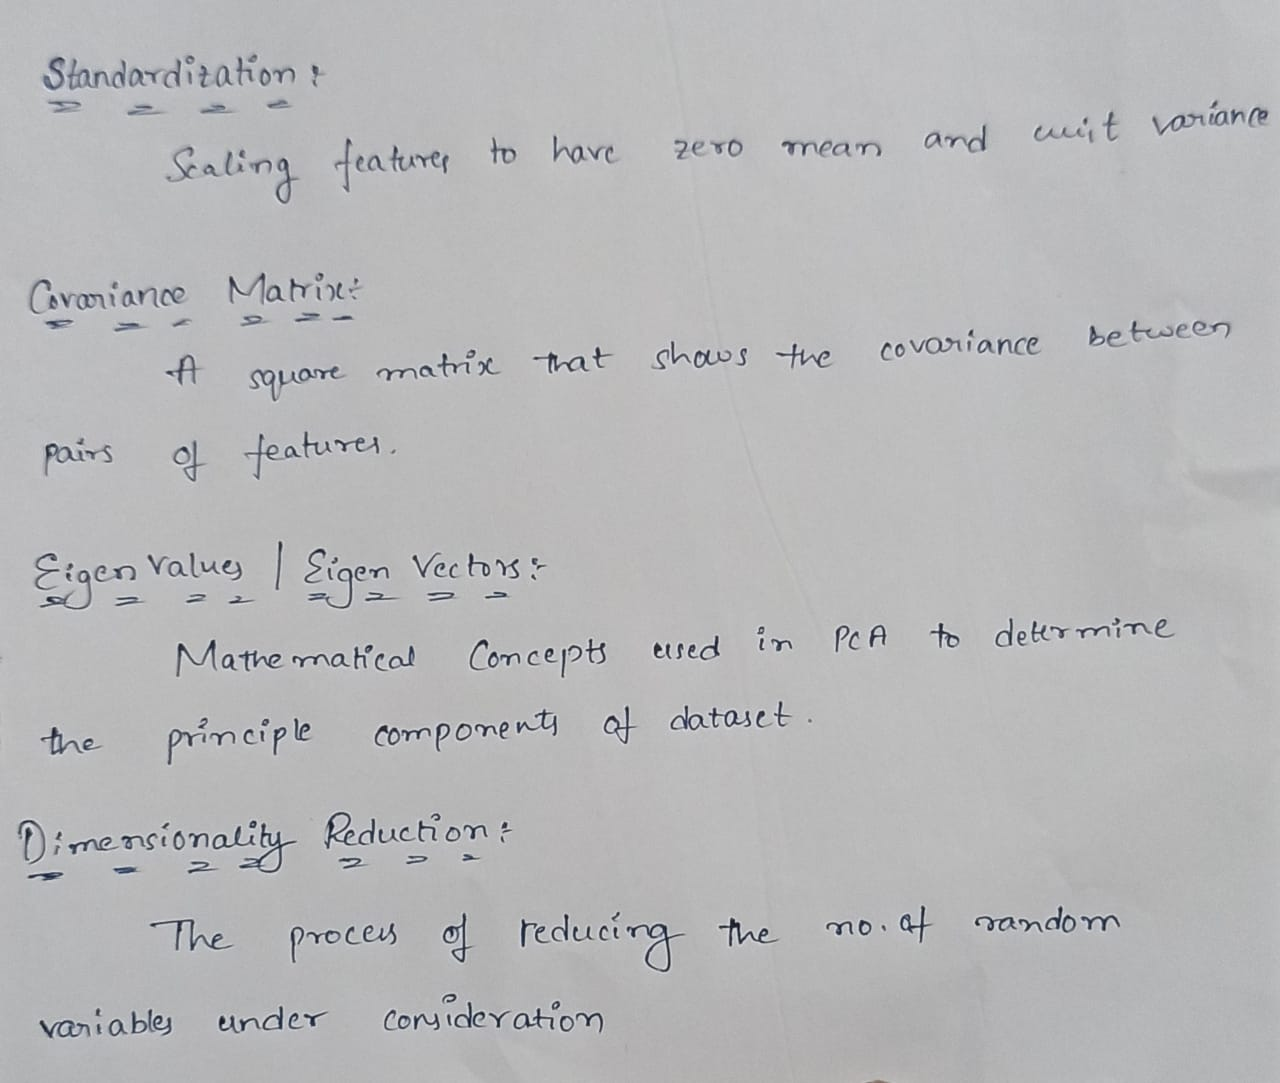 Standardization :
Scaling features to have zero mean and unit variance
Covariance Matrix :
A square matrix that shows the covariance between
pairs of features.
Eigen values | Eigen Vectors :
Mathematical Concepts used in PCA to determine
the principle components of dataset.
Dimensionality Reduction :
The process of reducing the no. of random
variables under consideration